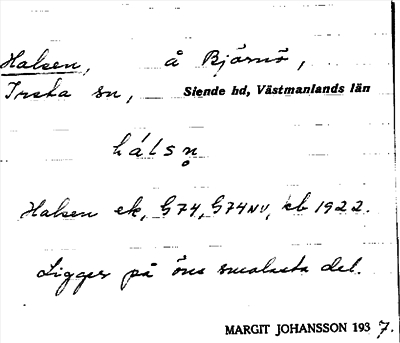 Halsen, å Björnö,
Irsta sn, Siende hd, Västmanlands län
hálsn̥
Halsen ek, G74, G74NV, kb 1922.
Ligger på öns smalaste del.
MARGIT JOHANSSON 1937.